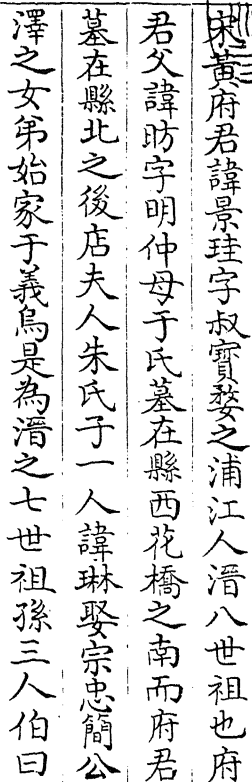 宋黃府君諱景珪字叔寶婺之浦江人溍八世祖也府
君父諱昉字明仲母于氏墓在縣西花橋之南而府君
墓在縣北之後店夫人朱氏子一人諱琳娶宗忠簡公
澤之女弟始家于義烏是為溍之七世祖孫三人伯曰